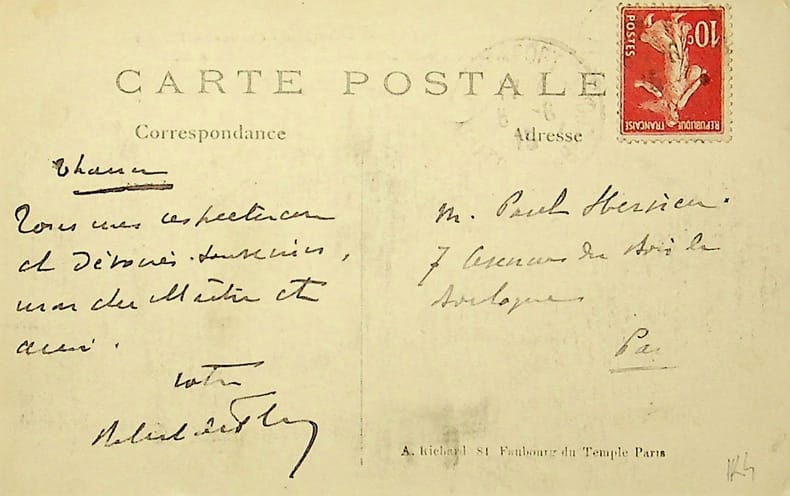 CARTE POSTALE
Correspondance
Adresse
10c
POSTES
REPUBLIQUE FRANÇAISE
Tous mes respectueux
et dévoués souvenirs,
mon cher Maître et
ami.
votre
Robert de Flers
M. Paul Hervieu.
7 Avenue du Bois de
Boulogne
Paris
A. Richard 84 Faubourg du Temple Paris